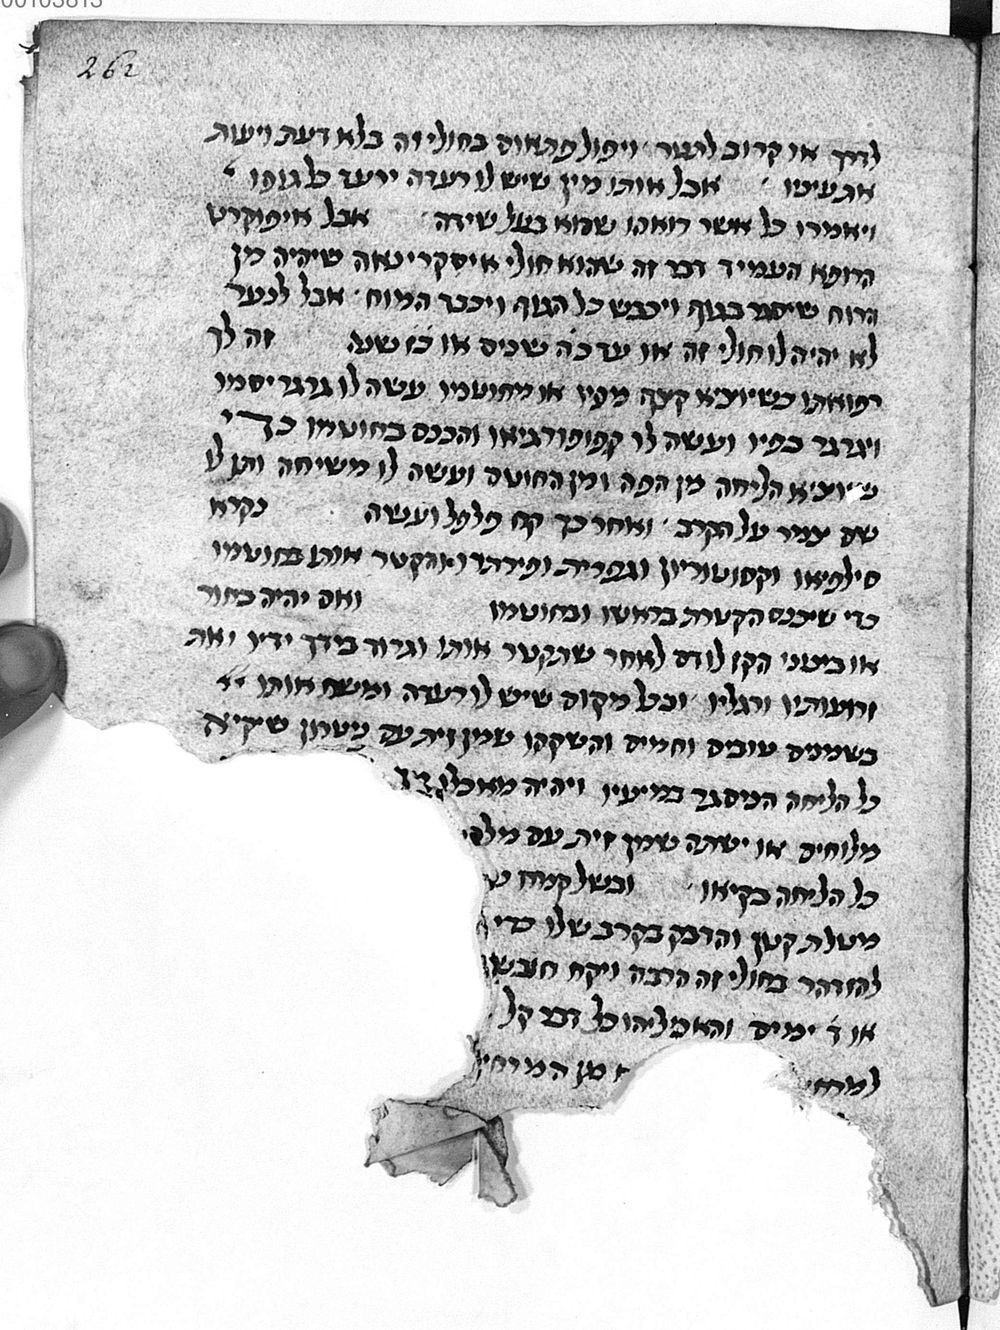 00103813
262
לדרך או קרוב לתנור ויפול פתאום בחולי זה בלא דעת ויעות
את עיניו אבל אותו מין שיש לו רעדה ירעד כל גופו
ויאמרו כל אשר רואהו שהוא בעל שידה אבל איפוקרט
הרופא העמיד דבר זה שהוא חולי איסקרינאה שיהיה מן
הרוח שיסגר בגוף ויכבש כל הגוף ויכבד המוח אבל לנער
לא יהיה לו חולי זה או עד כה שנים או כז שנה זה לך
רפואתו כשיוציא קצף מפיו או מחוטמו עשה לו גרגריסמו
ויגרגר בפיו ועשה לו קפופורגיאו והכנס בחוטמו כדי
שיוציא הליחה מן הפה ומן החוטם ועשה לו משיחה ותן לו
שם צמר על הקרב ואחר כך קח פלפל ועשה נקרא
סילפיאו וקסטוריון וגפרית ופירתרו והקטר אותו בחוטמו
כדי שיכנס הקטרת בראשו ובחוטמו ואם יהיה בחור
או בינוני הקז לו דם לאחר שתקטר אותו וגרור בידך ידיו ואת
זרועותיו ורגליו ובכל מקום שיש לו רעדה ומשח אותו
בשמנים טובים וחמים והשקהו שמן זית עם שיקיא
כל הליחה הנסגר במיעיו ויהיה מאכלו
מלוחים או ישתה שמן זית עם
כל הליחה בקיאו ובשל קמח
מטלת קטן והדבק בקרב שלו כדי
להזהר בחולי זה הרבה ויקח חובש
או ד ימים והאכילהו כל דבר קל
מן המרחץ